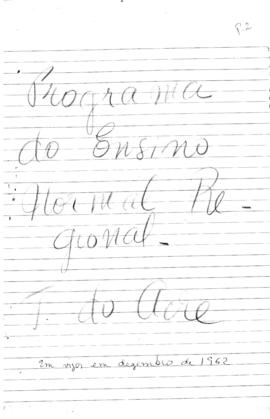 p.2
Programa
do Ensino
Normal Re-
gional-
T. do Acre
Em vigor em dezembro de 1962